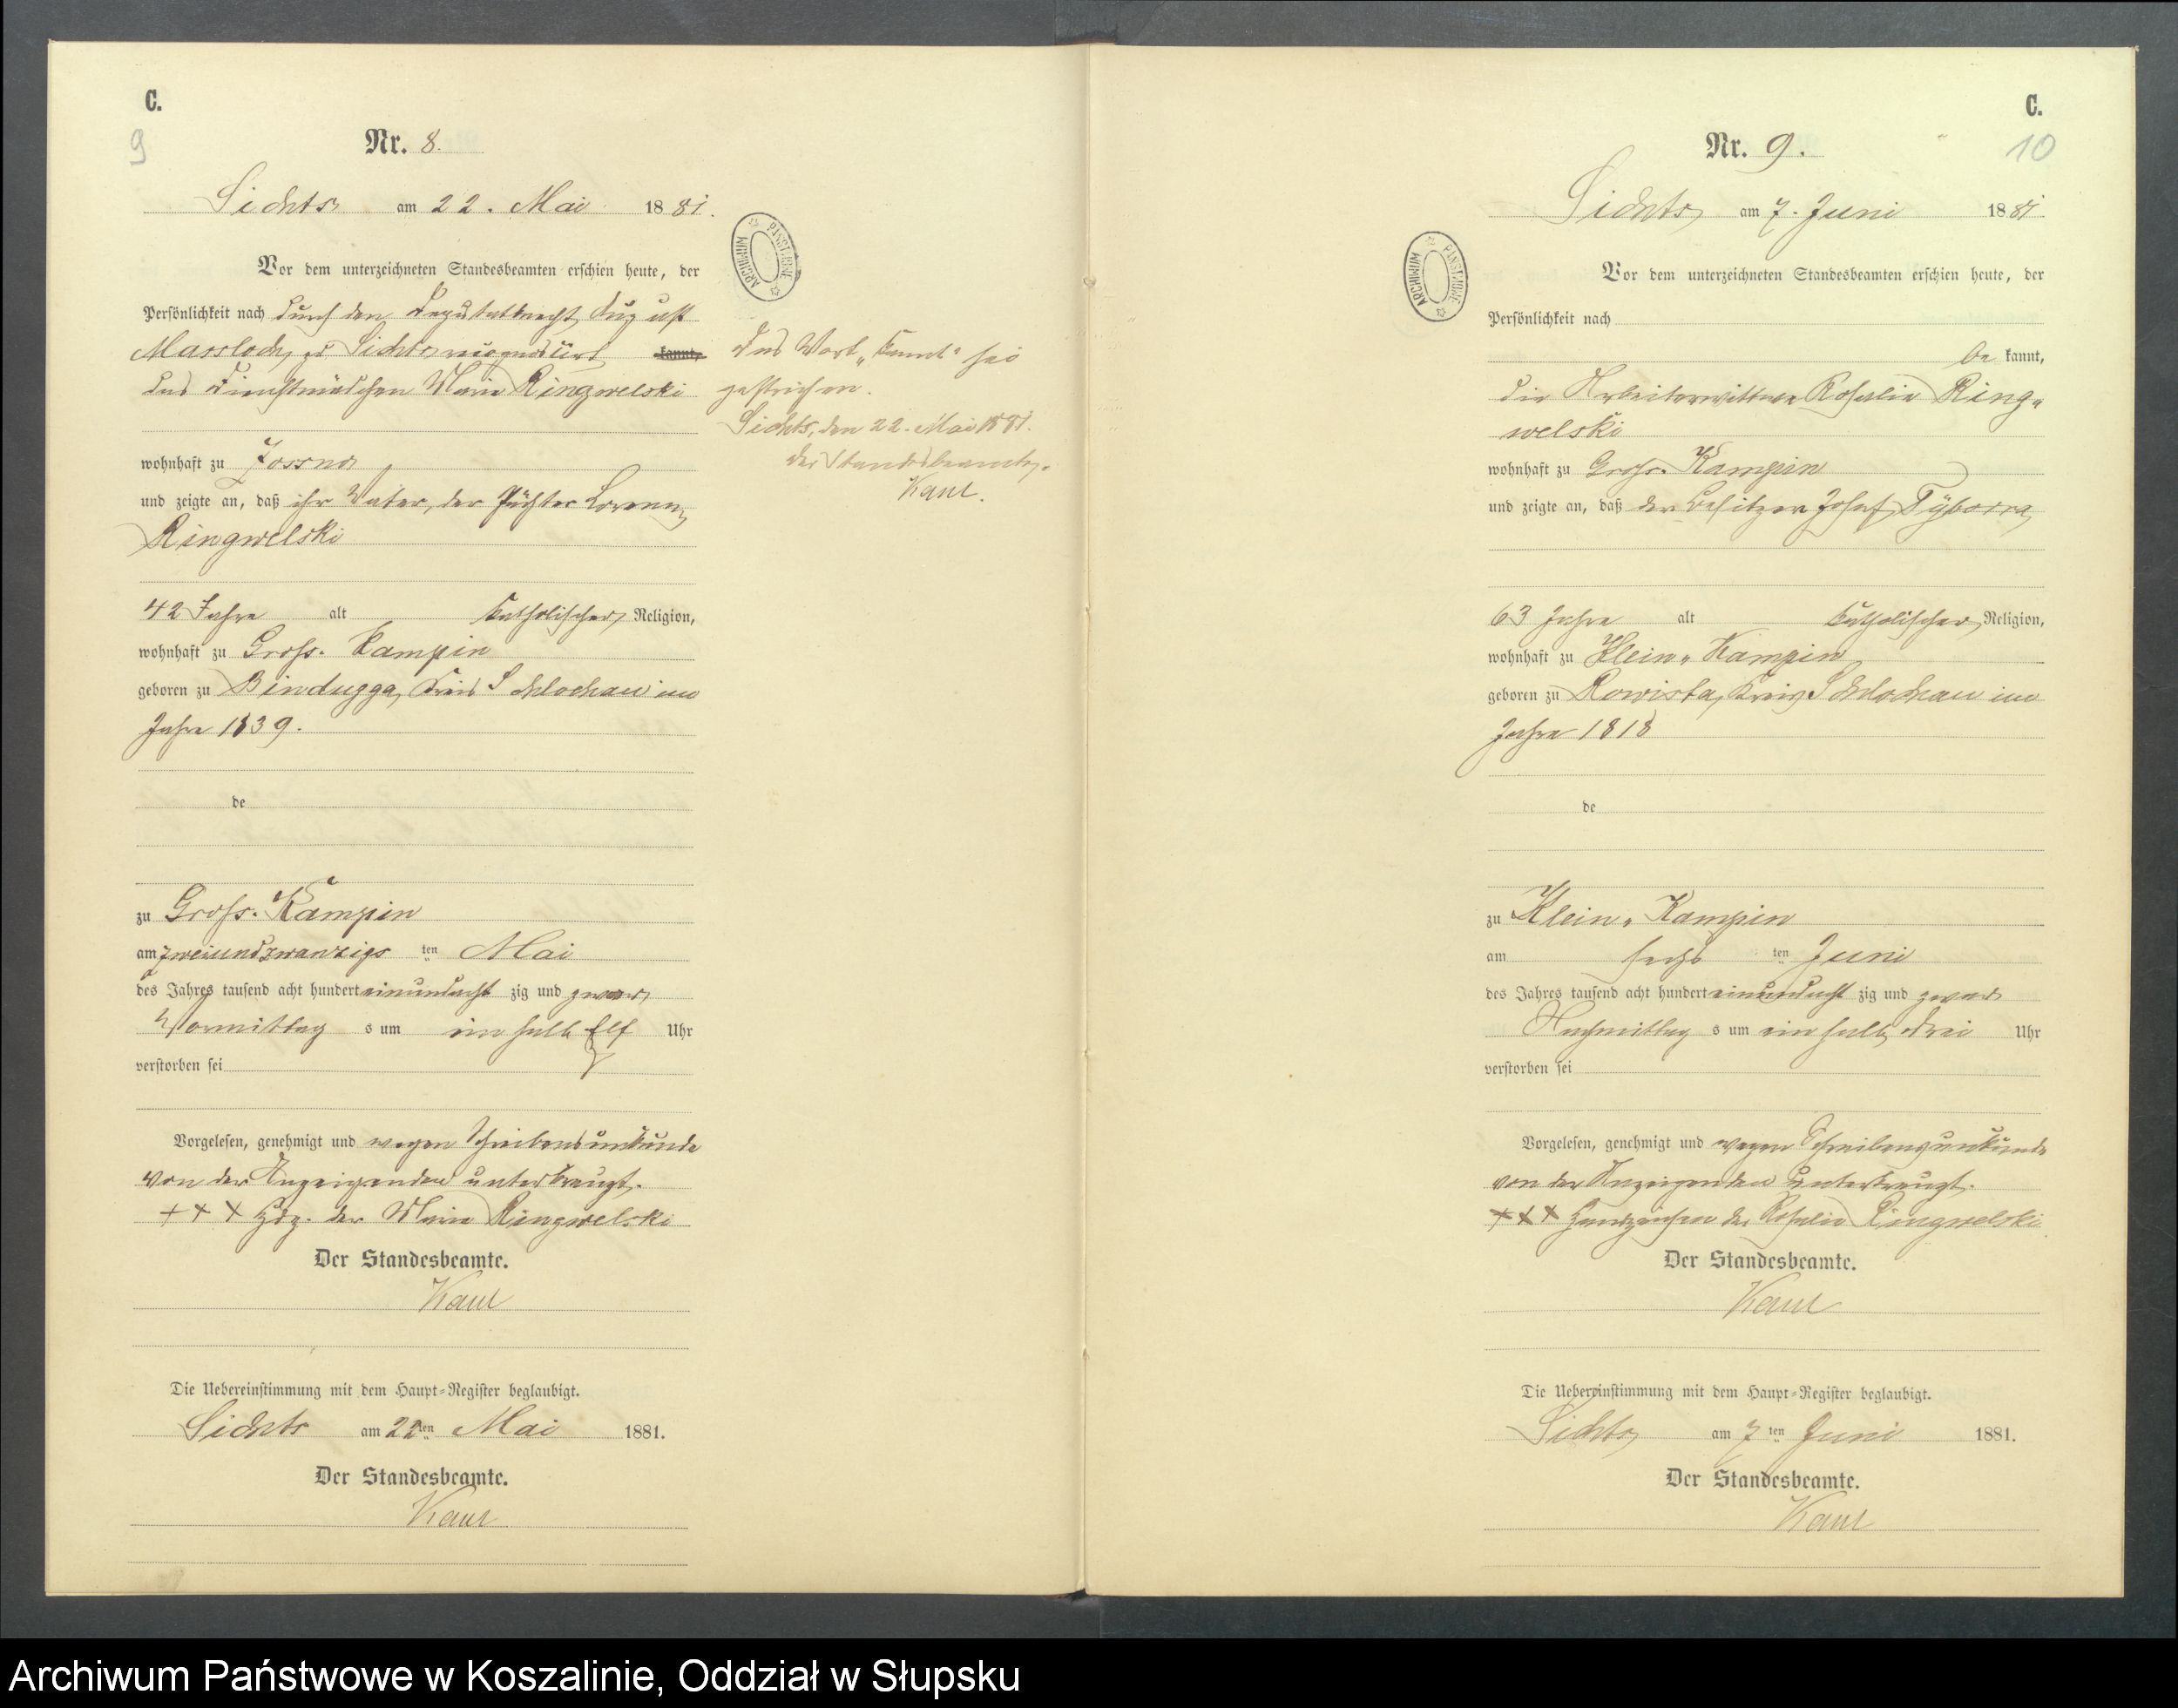 C.
9
Nr. 8.
Sichts am 22. Mai 1881.
Vor dem unterzeichneten Standesbeamten erschien heute, der
Persönlichkeit nach durch den Deputatknecht August
Massloch zu Sichts recognoscirt kannt,
das Dienstmädchen Marie Ringwelski
wohnhaft zu
und zeigte an, daß ihr Vater, der Pächter Lorenz
Ringwelski
42 Jahre alt katholischer Religion,
wohnhaft zu Gross-Kampin
geboren zu Bindugga, Kreis Schlochau im
Jahre 1839.
de
zu Gross-Kampin
am zweiundzwanzigsten Mai
des Jahres tausend acht hundert einundachtzig und zwar
Vormittags um ein halb Elf Uhr
verstorben sei
Vorgelesen, genehmigt und wegen Schreibensunkunde
von der Anzeigenden unterkreuzt.
+++ Hdz. der Marie Ringwelski
Der Standesbeamte.
Kaul
Die Uebereinstimmung mit dem Haupt-Register beglaubigt.
Sichts am 22ten Mai 1881.
Der Standesbeamte.
Kaul
ARCHIWUM PAŃSTWOWE
Das Wort „kannt" sei
gestrichen.
Sichts, den 22. Mai 1881.
Der Standesbeamte.
Kaul.
C.
10
Nr. 9.
Sichts am 7. Juni 1881
ARCHIWUM PAŃSTWOWE
Vor dem unterzeichneten Standesbeamten erschien heute, der
Persönlichkeit nach
be kannt,
die Arbeiterwittwe Rosalie Ring-
welski
wohnhaft zu Gross-Kampin
und zeigte an, daß der Besitzer Josef Tyborra
63 Jahre alt katholischer Religion,
wohnhaft zu Klein-Kampin
geboren zu Kreis Schlochau im
Jahre 1818
de
zu Klein-Kampin
am sechsten Juni
des Jahres tausend acht hundert einundachtzig und zwar
Nachmittags um ein halb drei Uhr
verstorben sei
Vorgelesen, genehmigt und wegen Schreibensunkunde
von der Anzeigenden unterkreuzt.
+++ Handzeichen der Rosalie Ringwelski
Der Standesbeamte.
Kaul
Die Uebereinstimmung mit dem Haupt-Register beglaubigt.
Sichts am 7ten Juni 1881.
Der Standesbeamte.
Kaul
Archiwum Państwowe w Koszalinie, Oddział w Słupsku